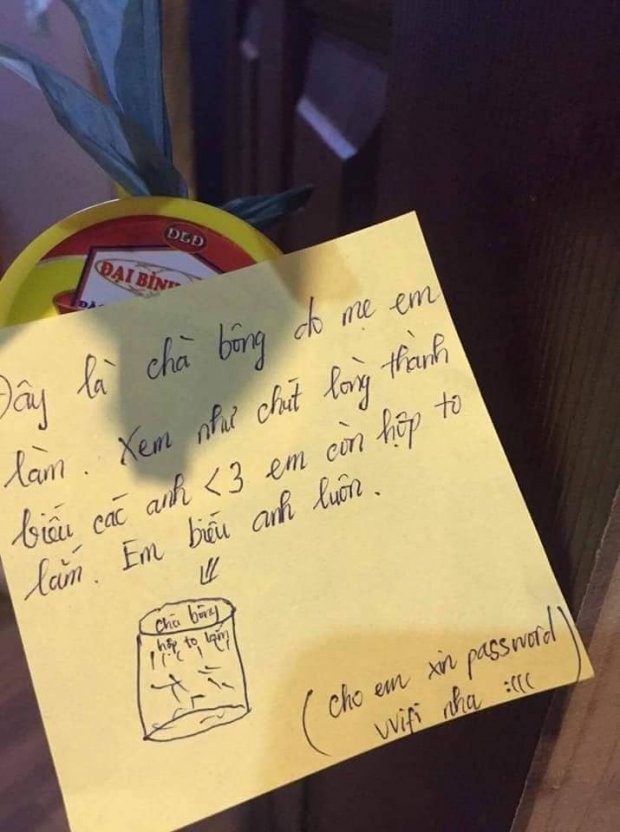 DGD
ĐẠI BÌNH
Đây là chà bông do mẹ em
làm. Xem như chút lòng thành
biếu các anh <3 em còn hộp to
lắm. Em biếu anh luôn.
chà bông
hộp to lắm
(cho em xin password
wifi nha :(((